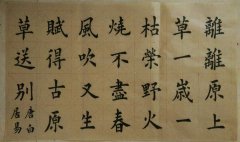 離離原上
草一歲一
枯榮野火
燒不盡春
風吹又生
賦得古原
草送别
唐白居易